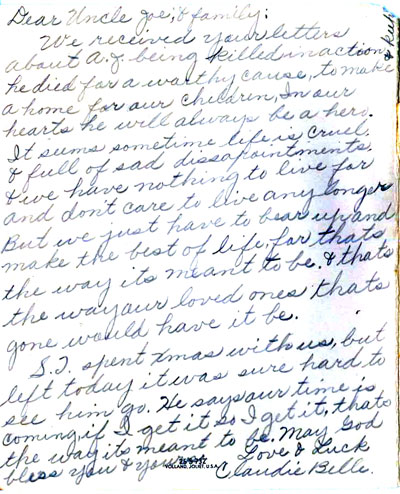 Dear Uncle Joe, & family:
We received your letters
about A.J. being killed in action
he died for a worthy cause, to make
a home for our children, In our
hearts he will always be a hero.
It sums sometime life is cruel
& full of sad dissapointments.
& we have nothing to live for
and don't care to live any longer
But we just have to bear up and
make the best of life, for thats
the way its meant to be. & thats
the way our loved ones thats
gone would have it be.
S.J. spent Xmas with us, but
left today it was sure hard to
see him go. He says our time is
coming, if I get it so I get it, thats
the way its meant to be. May God
bless you & your
Love & Luck
Claudie Belle.
VOLLAND, JOLIET, U.S.A.
& keep